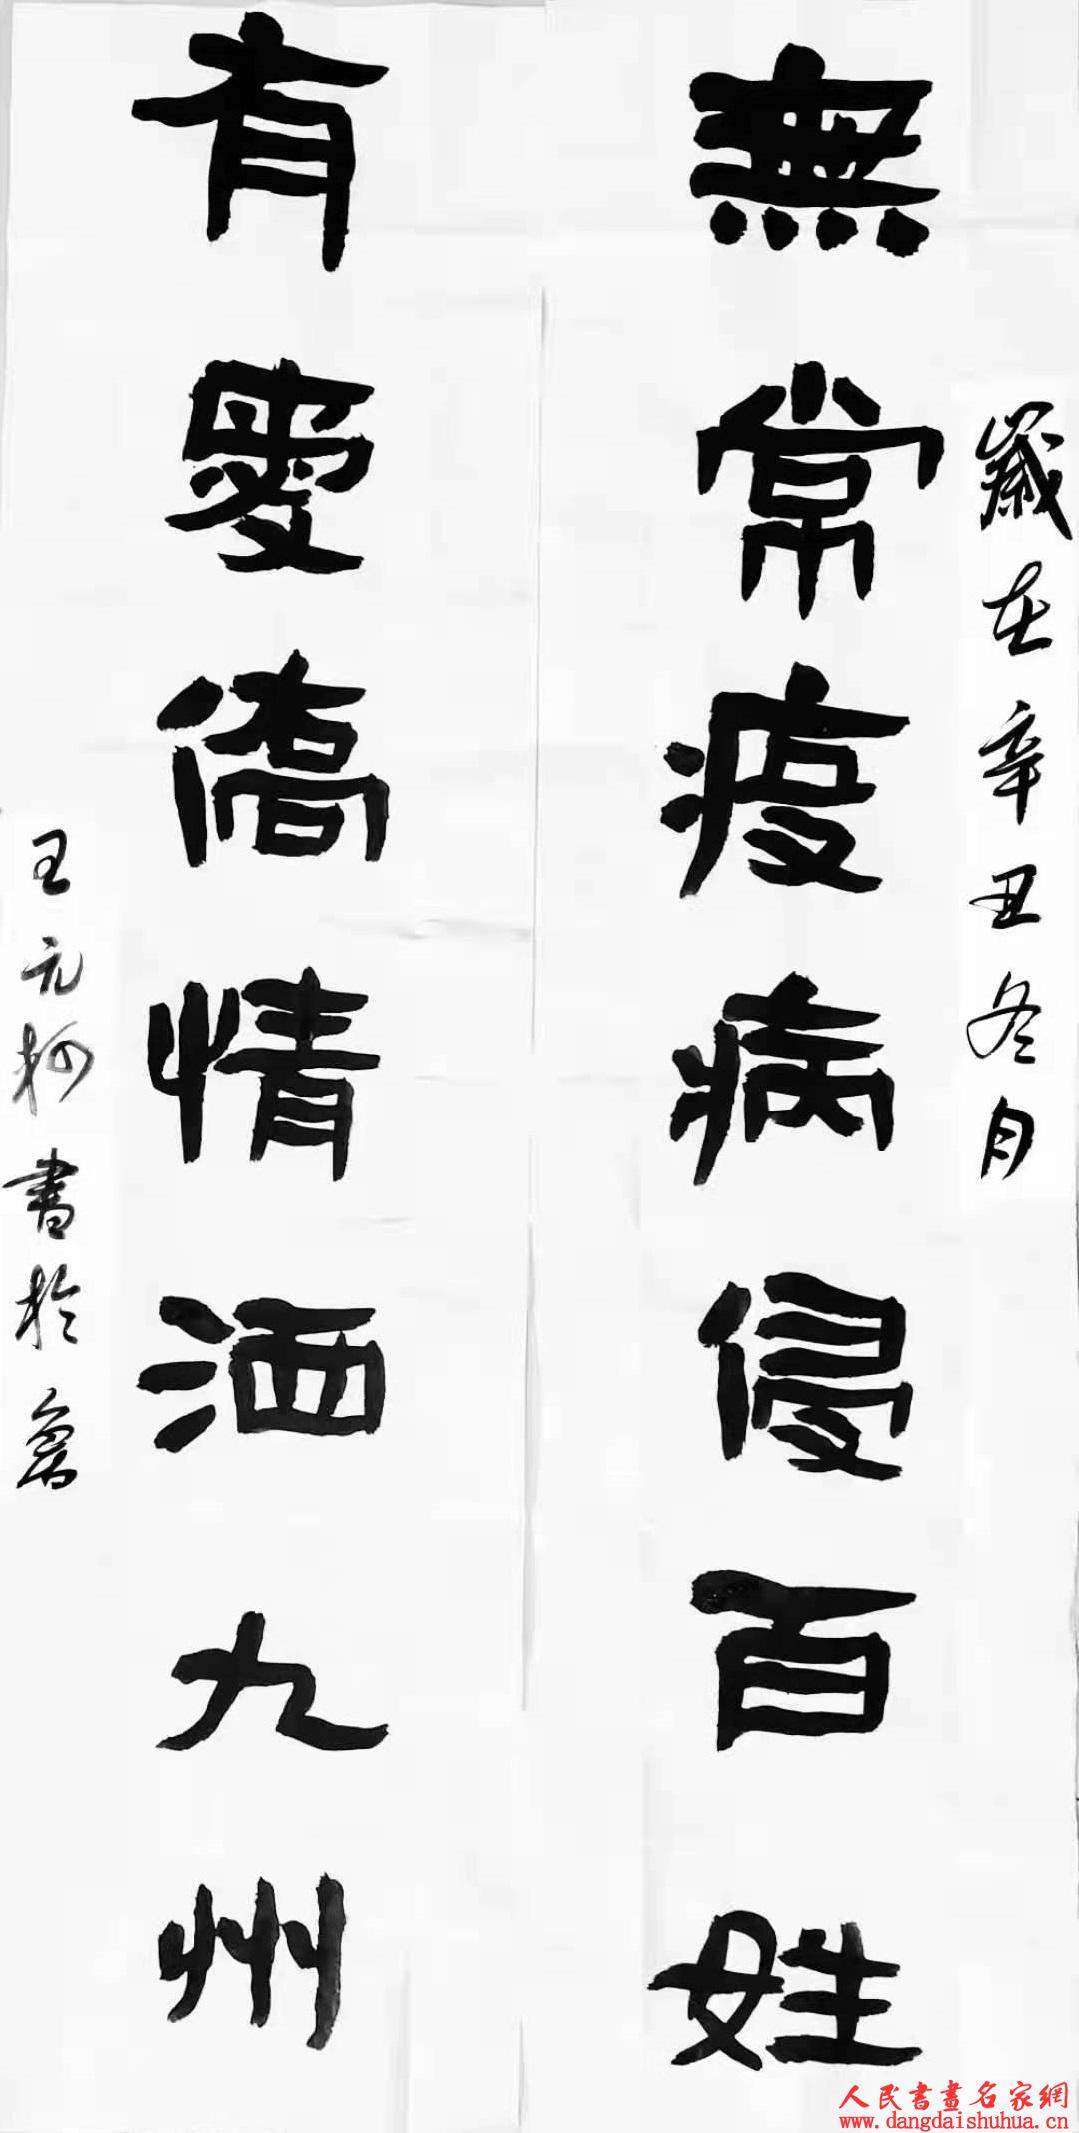 歲在辛丑冬月
無常疫病侵百姓
有愛僑情洒九州
王元柯書於魯
人民書畫名家網
www.dangdaishuhua.cn